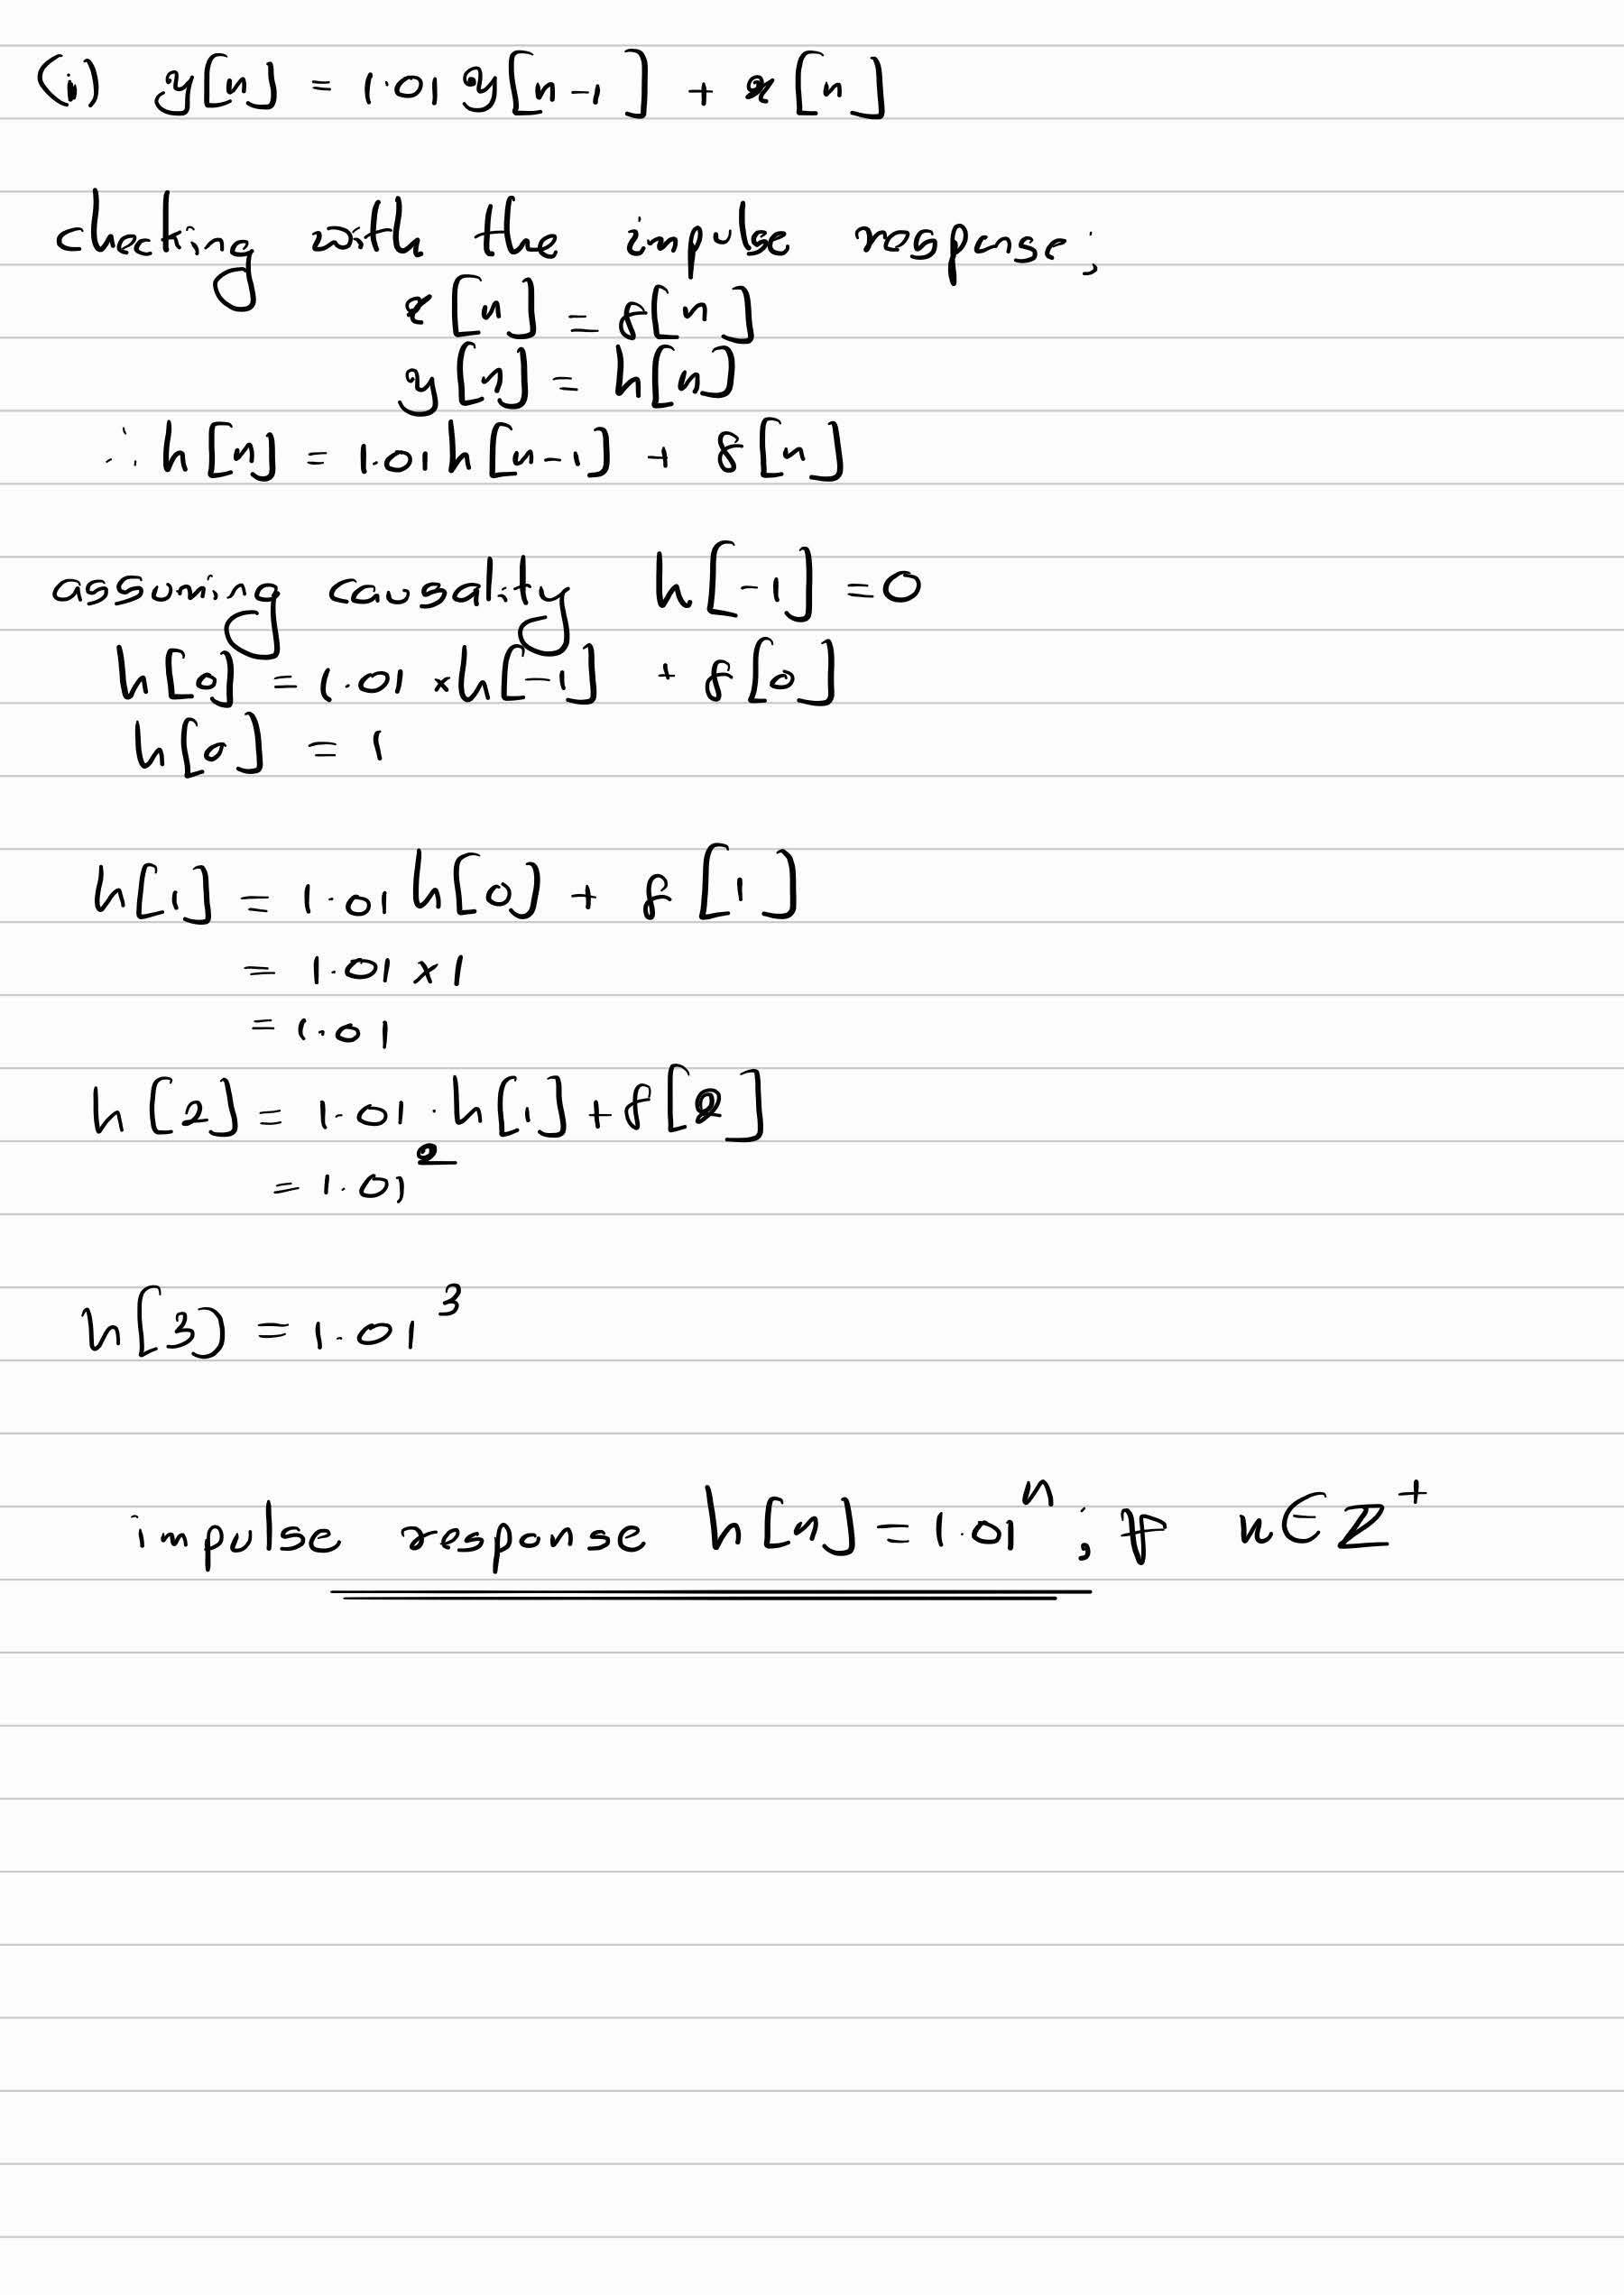 (i) y[n] = 1.01 y[n-1] + x[n]
checking with the impulse response;
x[n] = δ[n]
y[n] = h[n]
∴ h[n] = 1.01 h[n-1] + δ[n]
assuming causality h[-1] = 0
h[0] = 1.01 × h[-1] + δ[0]
h[0] = 1
h[1] = 1.01 h[0] + δ[1]
= 1.01 × 1
= 1.01
h[2] = 1.01 · h[1] + δ[2]
= 1.01²
h[3] = 1.01³
impulse response h[n] = 1.01ⁿ ; if n ∈ Z⁺